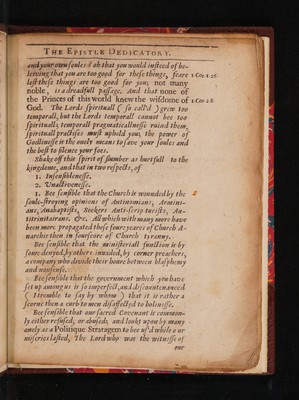 THE EPISTLE DEDICATORY.
and your own soules ô oh that you would insteed of be-
leeving that you are too good for these things, feare 1 Cor. 1.26
lest these things are too good for you; not many
noble, is a dreadfull passage. And that none of
the Princes of this world knew the wisdome of 1 Cor 2.8
God. The Lords spirituall ( so call'd ) grew too
temporall, but the Lords temporall cannot bee too
spirituall; temporall pragmaticallnesse ruined them,
spirituall practises must uphold you, the power of
Godlinesse is the onely means to save your soules and
the best to silence your foes.
Shake off this spirit of slumber as hurtfull to the
kingdome, and that in two respects, of
1. Insensiblenesse.
2. Unactivenesse.
1. Bee sensible that the Church is wounded by the
soule-stroying opinions of Antinomians, Armini-
ans, Anabaptists, Seekers Anti-scripturists, An-
titrinitarians. &c. All which with many more have
been more propagated these foure yeares of Church A-
narchie then in fourscore of Church tyranny.
Bee sensible that the ministeriall function is by
some denyed, by others invaded, by corner preachers,
a company who divide their houre betwixt blasphemy
and nonsense.
Bee sensible that the government which you have
set up among us is so imperfect, and discountenanced
( I tremble to say by whom ) that it is rather a
scorne then a curb to men disaffected to holinesse.
Bee sensible that our sacred Covenant is common-
ly either refused, or abused; and lookt upon by many
onely as a Politique Stratagem to bee us'd while our
miseries lasted, The Lord who was the witnesse of
our